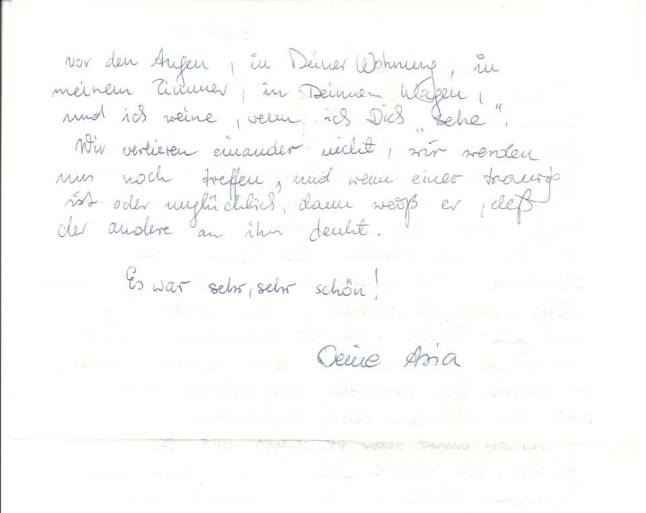 vor den Augen, in Deiner Wohnung, in
meinem Zimmer, in Deinem Wagen,
und ich weine, wenn ich Dich „sehe".
Wir verlieren einander nicht, wir werden
uns noch treffen, und wenn einer traurig
ist oder unglücklich, dann weiß er, daß
der andere an ihn denkt.
Es war sehr, sehr schön!
Deine Asia